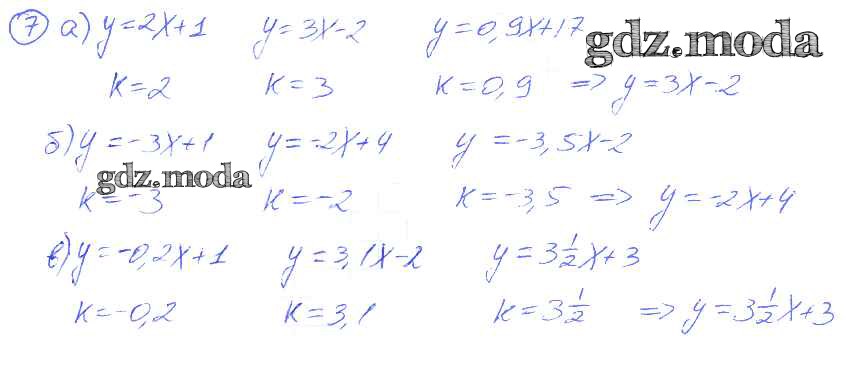 7 а) y=2x+1 y=3x-2 y=0,9x+17
gdz.moda
k=2 k=3 k=0,9 => y=3x-2
б) y=-3x+1 y=-2x+4 y=-3,5x-2
gdz.moda
k=-3 k=-2 k=-3,5 => y=-2x+4
в) y=-0,2x+1 y=3,1x-2 y=3 1/2 x+3
k=-0,2 k=3,1 k=3 1/2 => y=3 1/2 x+3